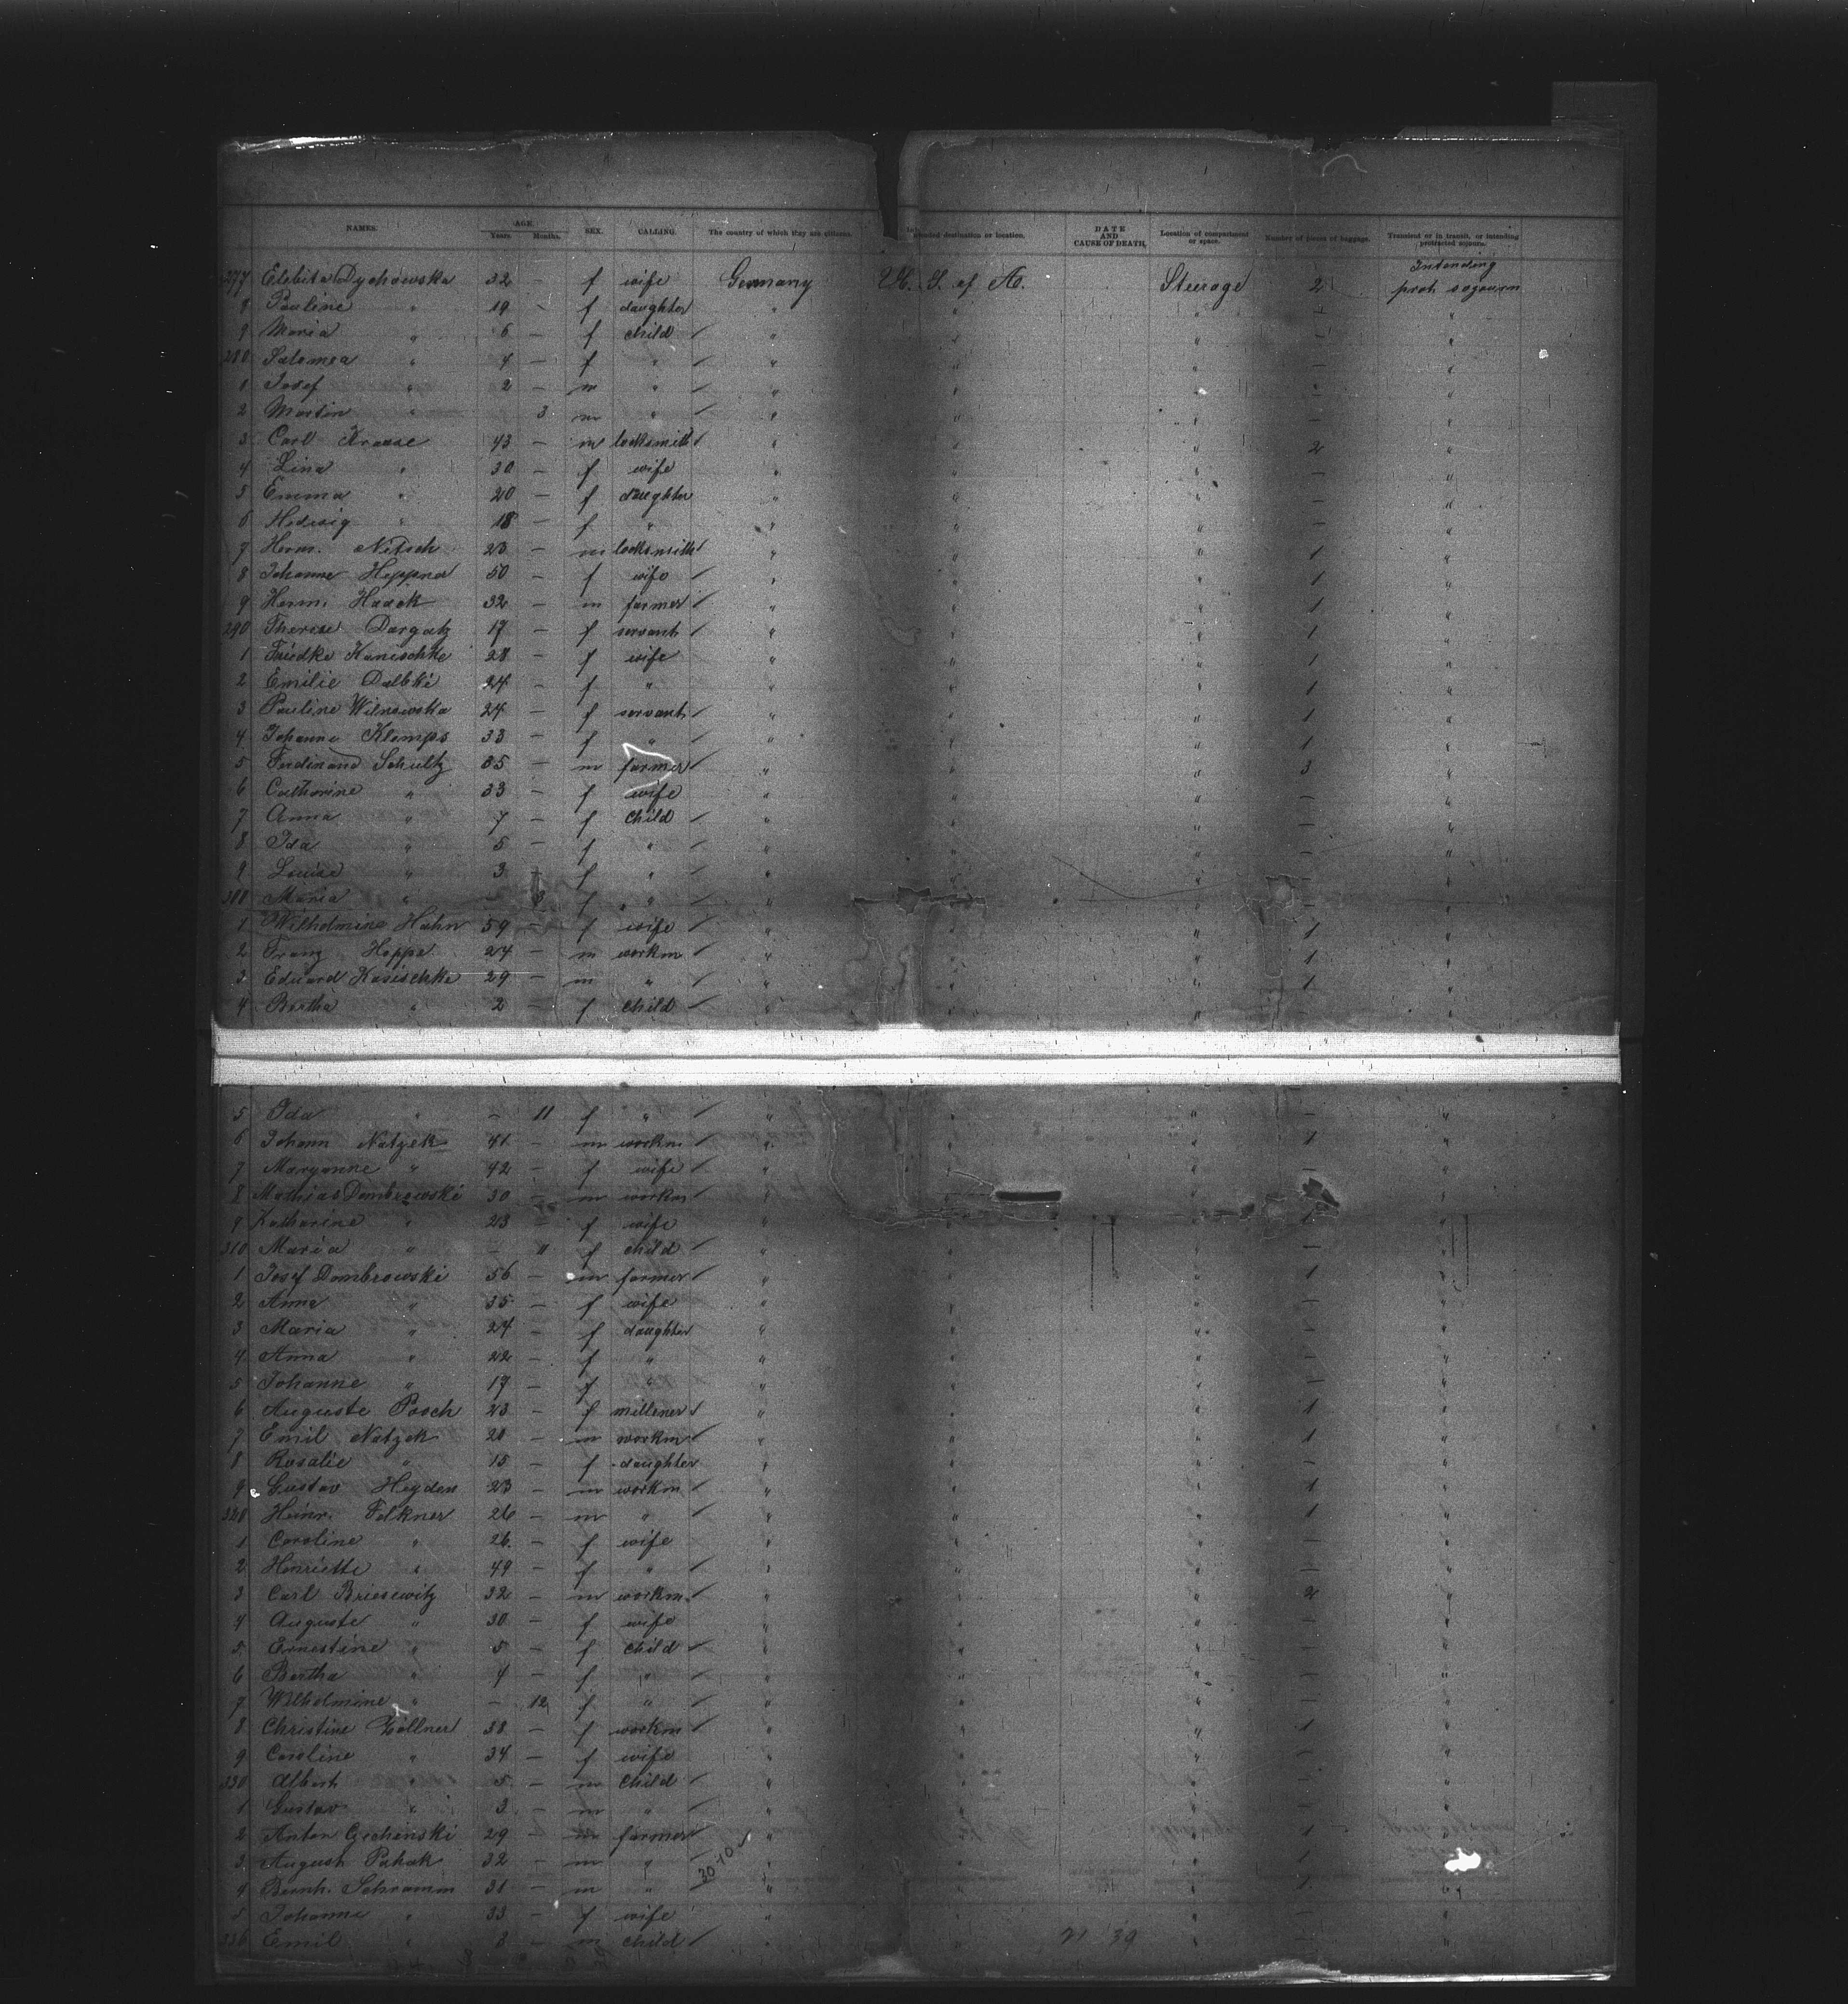 NAMES. AGE. Years. Months. SEX. CALLING. The country of which they are citizens. Intended destination or location. DATE AND CAUSE OF DEATH. Location of compartment or space. Number of pieces of baggage. Transient or in transit, or intending protracted sojourn.
277 Elsbita Dychowska 32 — f wife Germany U. S. of A. Steerage 2 Intending prot. sojourn
8 Pauline " 19 - f daughter " " " — "
9 Maria " 6 — f child " " " — "
280 Salomea " 4 — f " " " " — "
1 Josef " 2 — m " " " " — "
2 Martin " 3 m " " " " — "
3 Carl Krause 43 — m locksmith " " " 2 "
4 Lina " 30 — f wife " " " — "
5 Emma " 20 — f daughter " " " — "
6 Hedwig " 18 — f " " " " — "
7 Herm. Nitsch 23 — m locksmith " " " 1 "
8 Johanne Heppner 50 — f wife " " " 1 "
9 Herm. Haack 32 — m farmer " " " 1 "
290 Therese Dargatz 17 — f servant " " " 1 "
1 Friedke Kanischke 28 — f wife " " " 1 "
2 Emilie Dalbki 24 — f " " " " 1 "
3 Pauline Wilnowska 24 — f servant " " " 1 "
4 Johanne Klomps 33 — f " " " " 1 "
5 Ferdinand Schultz 35 — m farmer " " " 3 "
6 Catharine " 33 — f wife " " " — "
7 Anna " 7 — f child " " " — "
8 Ida " 5 — f " " " " — "
9 Louise " 3 — f " " " " — "
300 Maria " — 3 f " " " " — "
1 Wilhelmine Hahn 59 — f wife " " " 1 "
2 Franz Hoppe 24 — m workm " " " 1 "
3 Eduard Kasischke 29 — m " " " " 1 "
4 Bertha " 2 — f child " " " — "
5 Ida " — 11 f " " " " — "
6 Johann Natzek 41 — m workm " " " 1 "
7 Maryanne " 42 — f wife " " " — "
8 Mathias Dombrowski 30 — m workm " " "
9 Katharine " 23 — f wife " " " "
310 Maria " — 11 f child " " " — "
1 Josef Dombrowski 56 — m farmer " " " 1 "
2 Anna " 35 — f wife " " " — "
3 Maria " 24 — f daughter " " " — "
4 Anna " 22 — f " " " " — "
5 Johanne " 17 — f " " " " — "
6 Auguste Posch 23 — f millener " " " 1 "
7 Emil Natzek 20 — m workm " " " 1 "
8 Rosalie " 15 — f daughter " " " — "
9 Gustav Heyden 23 — m workm " " " 1 "
320 Heinr. Felkner 26 — m " " " " 1 "
1 Caroline " 26 — f wife " " " — "
2 Henriette " 49 — f " " " " — "
3 Carl Briesewitz 32 — m workm " " " 2 "
4 Auguste " 30 — f wife " " " — "
5 Ernestine " 5 — f child " " " — "
6 Bertha " 4 — f " " " " — "
7 Wilhelmine " — 12 f " " " " — "
8 Christine Zöllner 38 — f workm " " " 1 "
9 Caroline " 34 — f wife " " " — "
330 Albert " 5 — m child " " " — "
1 Gustav " 3 — m " " " " — "
2 Anton Gechinski 29 — m farmer " " " 1 "
3 August Pahak 32 — m " " " " 1 "
4 Bernh. Schramm 31 — m " " " " 1 "
5 Johanne " 33 — f wife " " " — "
336 Emil " 3 — m child " " " — "